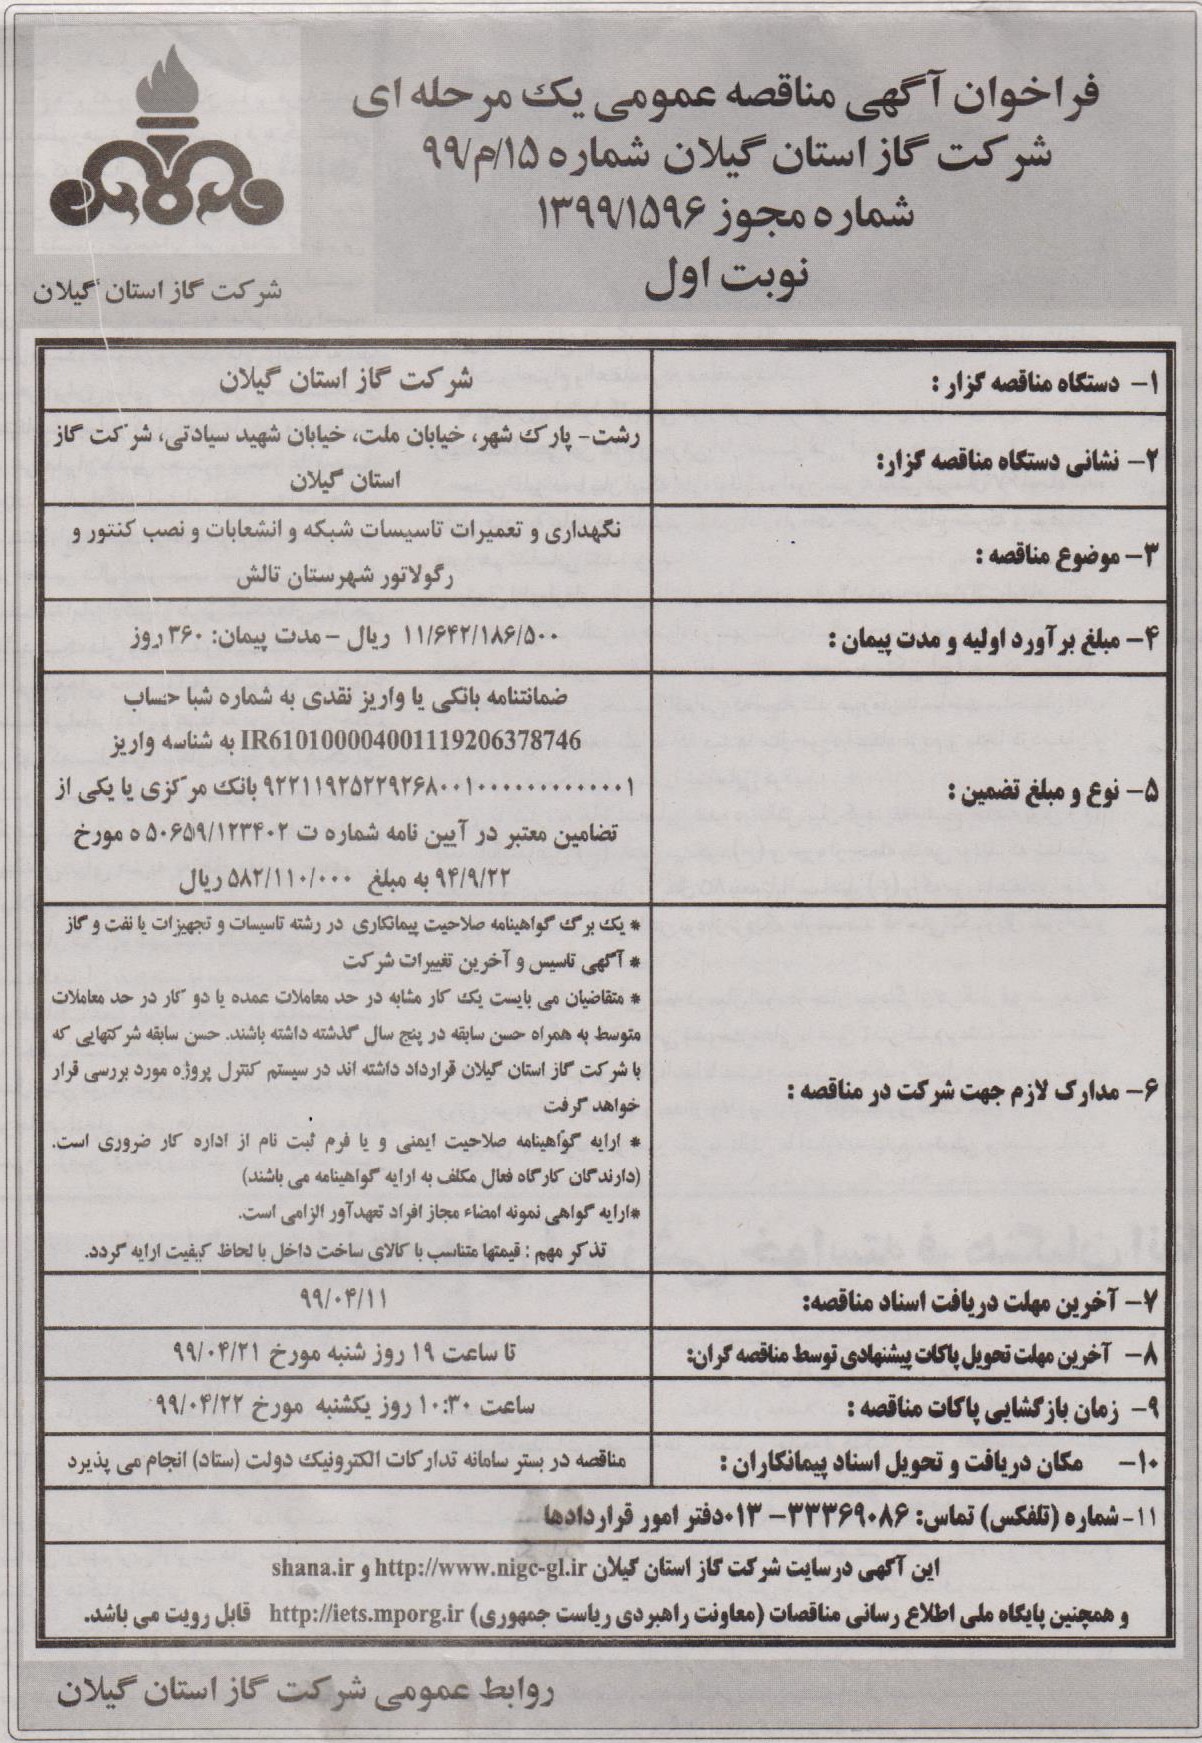 فراخوان آگهی مناقصه عمومی یک مرحله ای
شرکت گاز استان گیلان شماره ۱۵/م/۹۹
شماره مجوز ۱۳۹۹/۱۵۹۶
نوبت اول
شرکت گاز استان گیلان
۱- دستگاه مناقصه گزار :
شرکت گاز استان گیلان
۲- نشانی دستگاه مناقصه گزار:
رشت- پارک شهر، خیابان ملت، خیابان شهید سیادتی، شرکت گاز
استان گیلان
۳- موضوع مناقصه :
نگهداری و تعمیرات تاسیسات شبکه و انشعابات و نصب کنتور و
رگولاتور شهرستان تالش
۴- مبلغ برآورد اولیه و مدت پیمان :
۱۱/۶۴۲/۱۸۶/۵۰۰ ریال - مدت پیمان: ۳۶۰ روز
۵- نوع و مبلغ تضمین :
ضمانتنامه بانکی یا واریز نقدی به شماره شبا حساب
IR610100004001119206378746 به شناسه واریز
۹۲۲۱۱۹۲۵۲۲۹۲۶۸۰۰۱۰۰۰۰۰۰۰۰۰۰۰۰۱ بانک مرکزی یا یکی از
تضامین معتبر در آیین نامه شماره ت ۵۰۶۵۹/۱۲۳۴۰۲ ه مورخ
۹۴/۹/۲۲ به مبلغ ۵۸۲/۱۱۰/۰۰۰ ریال
۶- مدارک لازم جهت شرکت در مناقصه :
* یک برگ گواهینامه صلاحیت پیمانکاری در رشته تاسیسات و تجهیزات یا نفت و گاز
* آگهی تاسیس و آخرین تغییرات شرکت
* متقاضیان می بایست یک کار مشابه در حد معاملات عمده یا دو کار در حد معاملات
متوسط به همراه حسن سابقه در پنج سال گذشته داشته باشند. حسن سابقه شرکتهایی که
با شرکت گاز استان گیلان قرارداد داشته اند در سیستم کنترل پروژه مورد بررسی قرار
خواهد گرفت
* ارایه گواهینامه صلاحیت ایمنی و یا فرم ثبت نام از اداره کار ضروری است.
(دارندگان کارگاه فعال مکلف به ارایه گواهینامه می باشند)
*ارایه گواهی نمونه امضاء مجاز افراد تعهدآور الزامی است.
تذکر مهم : قیمتها متناسب با کالای ساخت داخل با لحاظ کیفیت ارایه گردد.
۷- آخرین مهلت دریافت اسناد مناقصه:
۹۹/۰۴/۱۱
۸- آخرین مهلت تحویل پاکات پیشنهادی توسط مناقصه گران:
تا ساعت ۱۹ روز شنبه مورخ ۹۹/۰۴/۲۱
۹- زمان بازگشایی پاکات مناقصه :
ساعت ۱۰:۳۰ روز یکشنبه مورخ ۹۹/۰۴/۲۲
۱۰- مکان دریافت و تحویل اسناد پیمانکاران :
مناقصه در بستر سامانه تدارکات الکترونیک دولت (ستاد) انجام می پذیرد
۱۱- شماره (تلفکس) تماس: ۳۳۳۶۹۰۸۶ - ۰۱۳دفتر امور قراردادها
این آگهی درسایت شرکت گاز استان گیلان http://www.nigc-gl.ir و shana.ir
و همچنین پایگاه ملی اطلاع رسانی مناقصات (معاونت راهبردی ریاست جمهوری) http://iets.mporg.ir قابل رویت می باشد.
روابط عمومی شرکت گاز استان گیلان